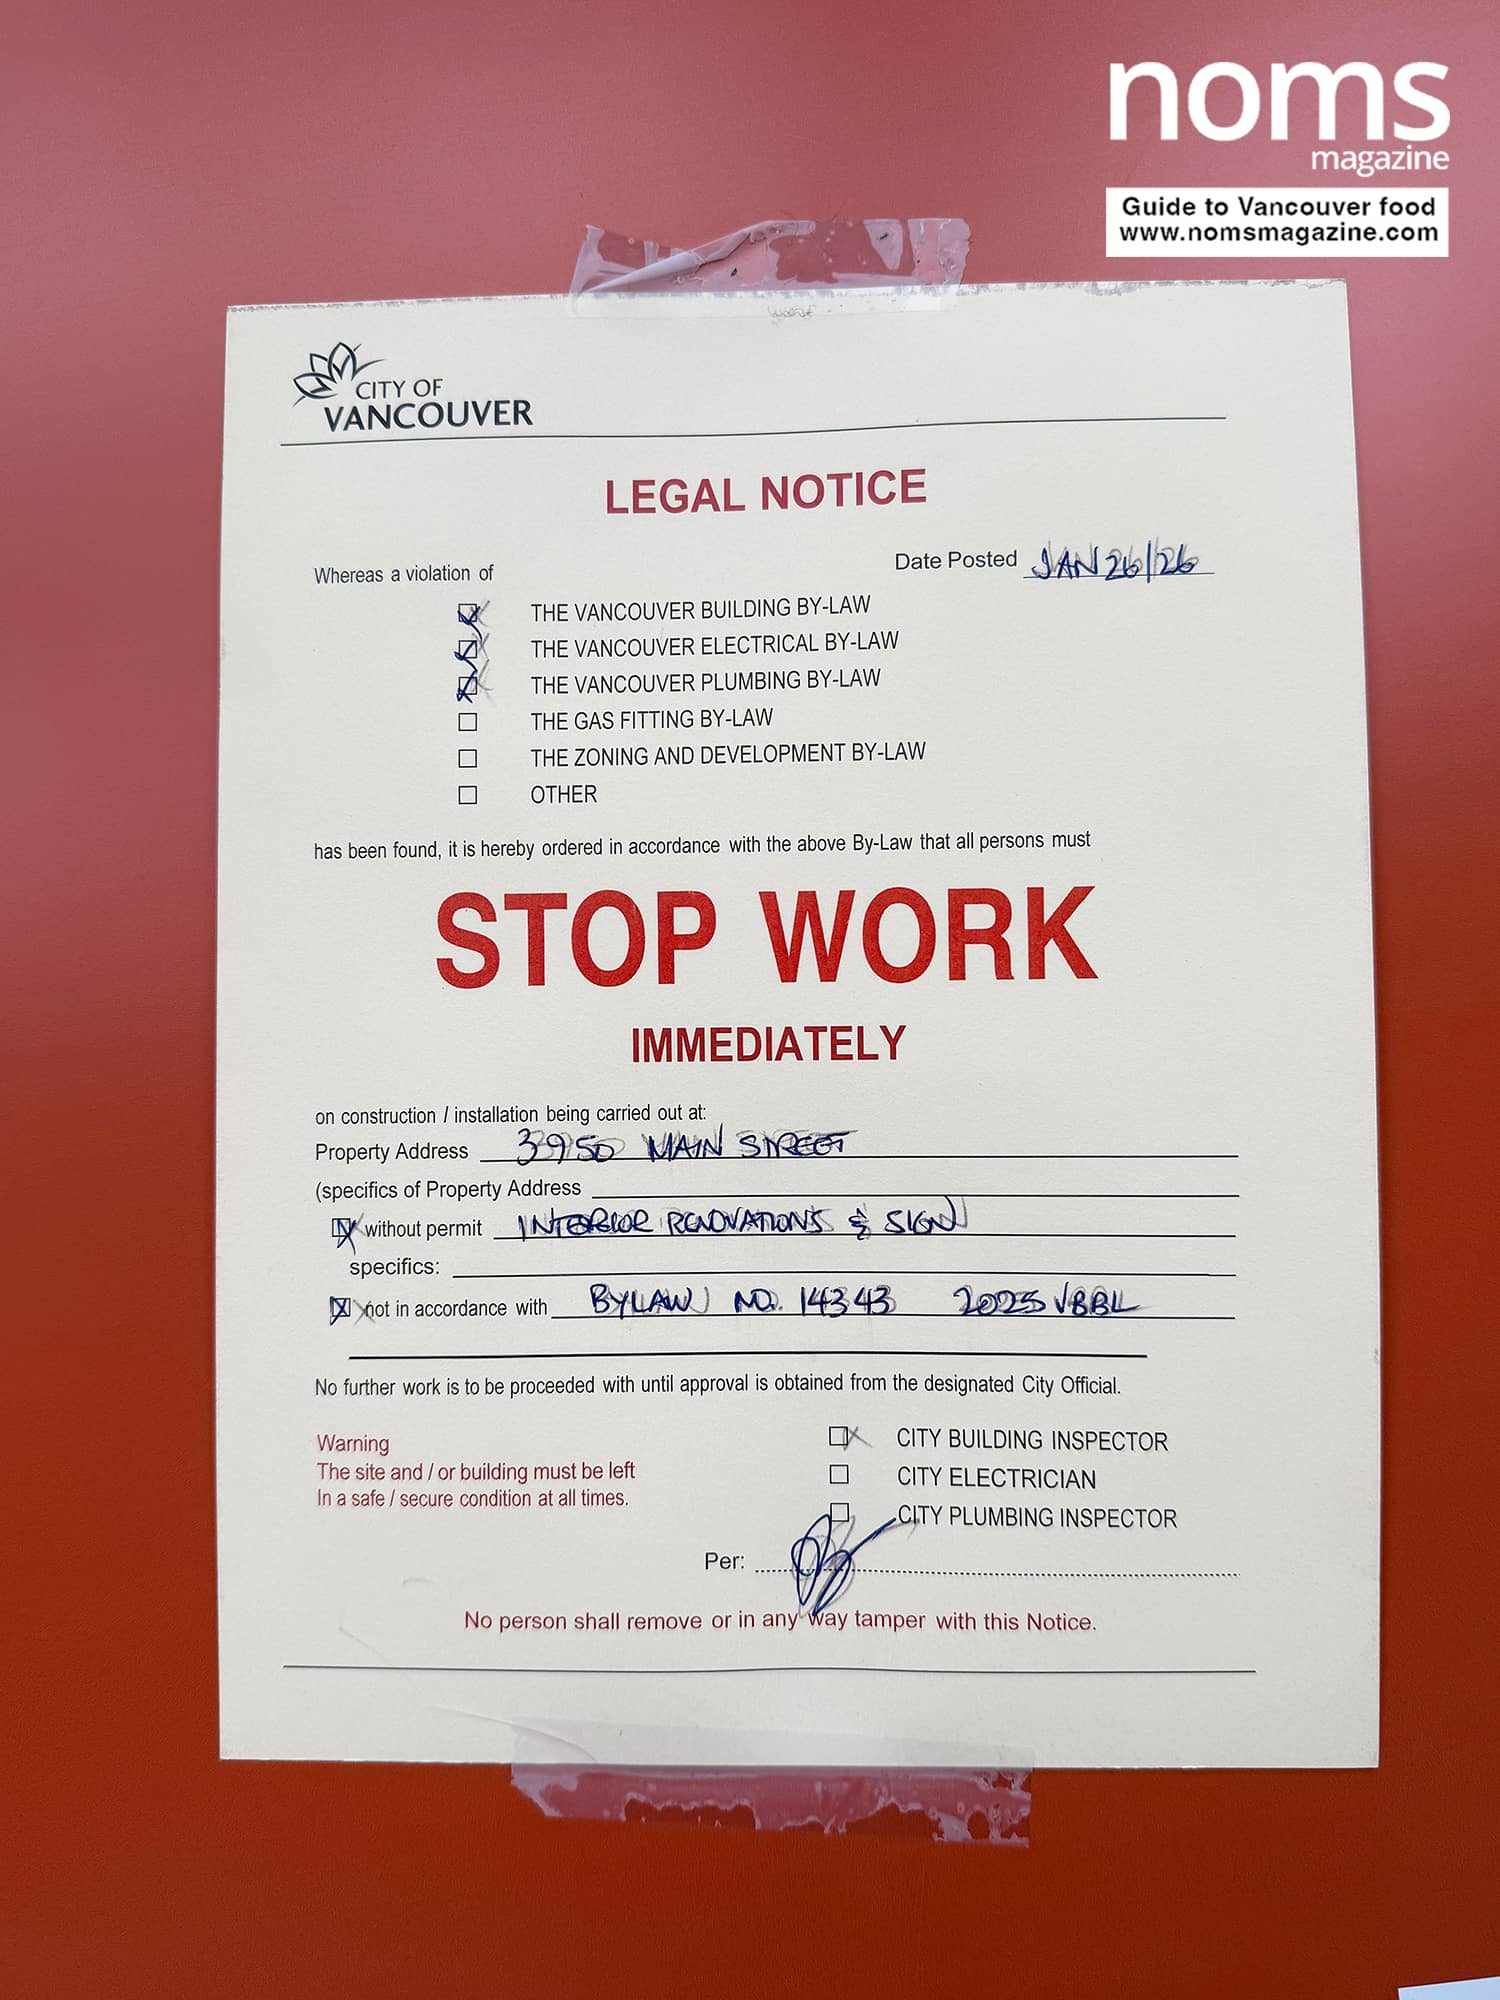 noms
magazine
Guide to Vancouver food
www.nomsmagazine.com
CITY OF
VANCOUVER
LEGAL NOTICE
Date Posted JAN 26/26
Whereas a violation of
THE VANCOUVER BUILDING BY-LAW
THE VANCOUVER ELECTRICAL BY-LAW
THE VANCOUVER PLUMBING BY-LAW
THE GAS FITTING BY-LAW
THE ZONING AND DEVELOPMENT BY-LAW
OTHER
has been found, it is hereby ordered in accordance with the above By-Law that all persons must
STOP WORK
IMMEDIATELY
on construction / installation being carried out at:
Property Address 3950 MAIN STREET
(specifics of Property Address
without permit INTERIOR RENOVATIONS & SIGN
specifics:
not in accordance with BYLAW NO. 14343 2025 VBBL
No further work is to be proceeded with until approval is obtained from the designated City Official.
Warning
The site and / or building must be left
In a safe / secure condition at all times.
CITY BUILDING INSPECTOR
CITY ELECTRICIAN
CITY PLUMBING INSPECTOR
Per:
No person shall remove or in any way tamper with this Notice.